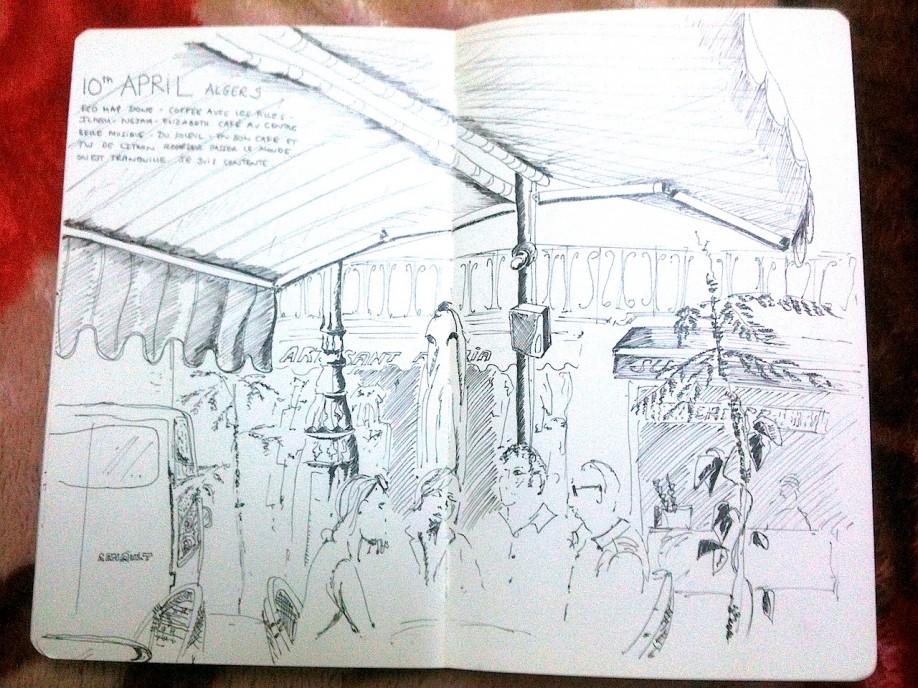 10th APRIL ALGERS
ECO MAP DONE - COFFEE AVEC LES FILLES -
NEJAH - ELIZABETH CAFÉ AU CENTRE
BELLE MUSIQUE - DU SOLEIL - UN BON CAFÉ ET
JUS DE CITRON REGARDER PASSER LE MONDE
QU'EST TRANQUILLE JE SUIS CONTENTE
ARTISANT